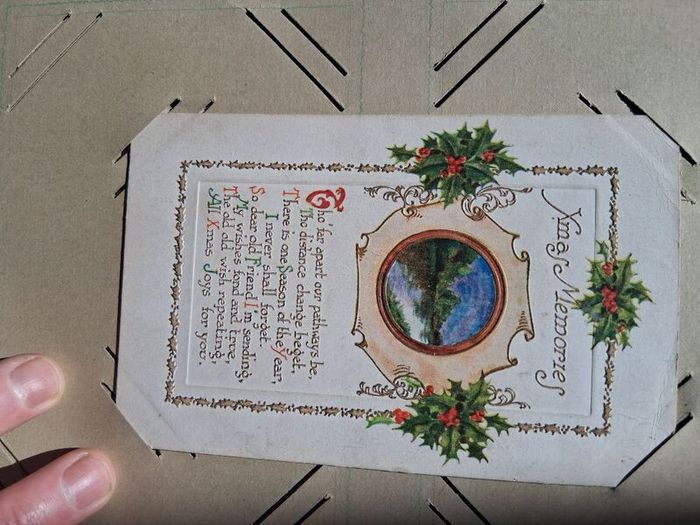 Xmas Memories
Tho' far apart our pathways be,
Tho distance change beget,
There is one Season of the Year,
I never shall forget.
So dear old Friend I'm sending,
My wishes fond and true,
The old old wish repeating,
All Xmas Joys for you.